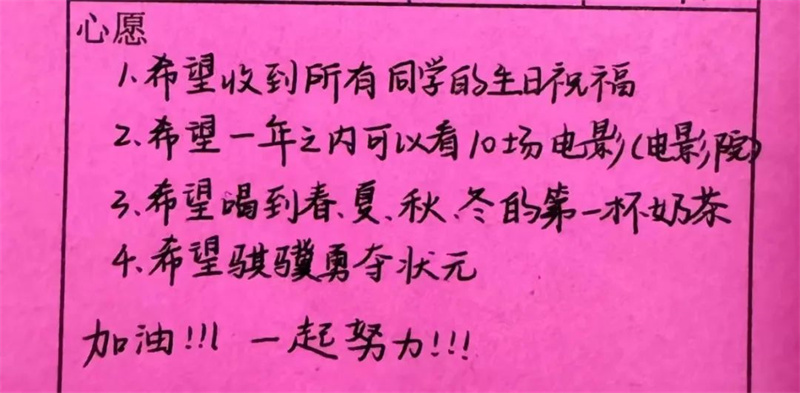 心愿
1.希望收到所有同学的生日祝福
2.希望一年之内可以看10场电影(电影院)
3.希望喝到春、夏、秋、冬的第一杯奶茶
4.希望骐骥勇夺状元
加油!!! 一起努力!!!